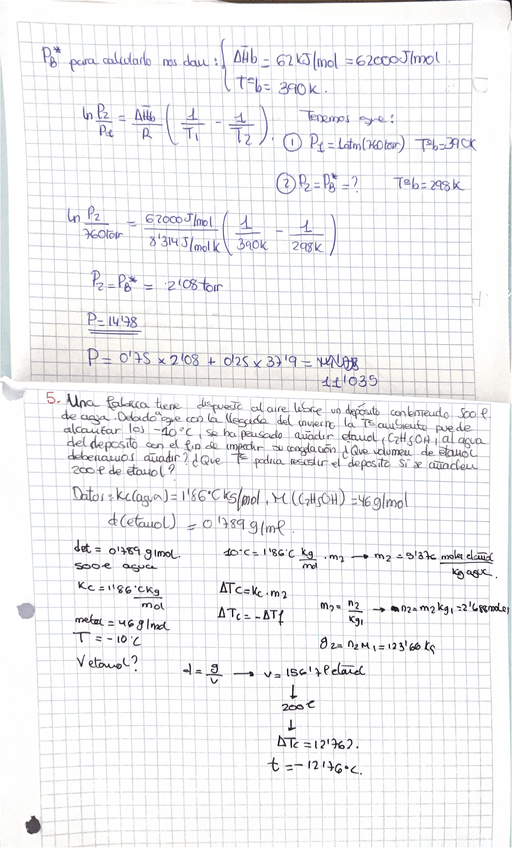 P_B* para calcularlo nos dan: { ΔHb = 62 kJ/mol = 62000 J/mol.
Tªb = 390 K.
ln P2/P1 = ΔHb/R (1/T1 - 1/T2). Tenemos que:
① P1 = 1 atm (760 torr) Tªb = 390K
② P2 = P_B* = ? Tªb = 298K
ln P2/760torr = 62000 J/mol / 8'314 J/mol K (1/390K - 1/298K)
P2 = P_B* = 2'08 torr
P = 14'78
P = 0'75 x 2'08 + 0'25 x 37'9 =
11'035
5. Una fábrica tiene dispuesto al aire libre un depósito conteniendo 500 ℓ
de agua. Debido a que con la llegada del invierno la Tª ambiente puede
alcanzar los -10°C, se ha pensado añadir etanol, C2H5OH, al agua
del depósito con el fin de impedir su congelación ¿Qué volumen de etanol
deberíamos añadir? ¿Qué Tª podría resistir el depósito si se añaden
200 ℓ de etanol?
Datos = Kc(agua) = 1'86°C kg/mol, M (C2H5OH) = 46 g/mol
d(etanol) = 0'789 g/ml.
det = 0'789 g/mol. 10°C = 1'86°C kg/mol · m2 → m2 = 5'376 moles etanol/kg agua.
500 ℓ agua
Kc = 1'86°C kg/mol ΔTc = Kc · m2
ΔTc = -ΔTf m2 = n2/kg1 → n2 = m2 kg1 = 2'688 moles
metanol = 46 g/mol
T = -10°C g2 = n2 M1 = 123'66 kg
V etanol? d = g/v → v = 156'7 ℓ etanol
↓
200 ℓ
↓
ΔTc = 12'762.
t = -12'76°C.